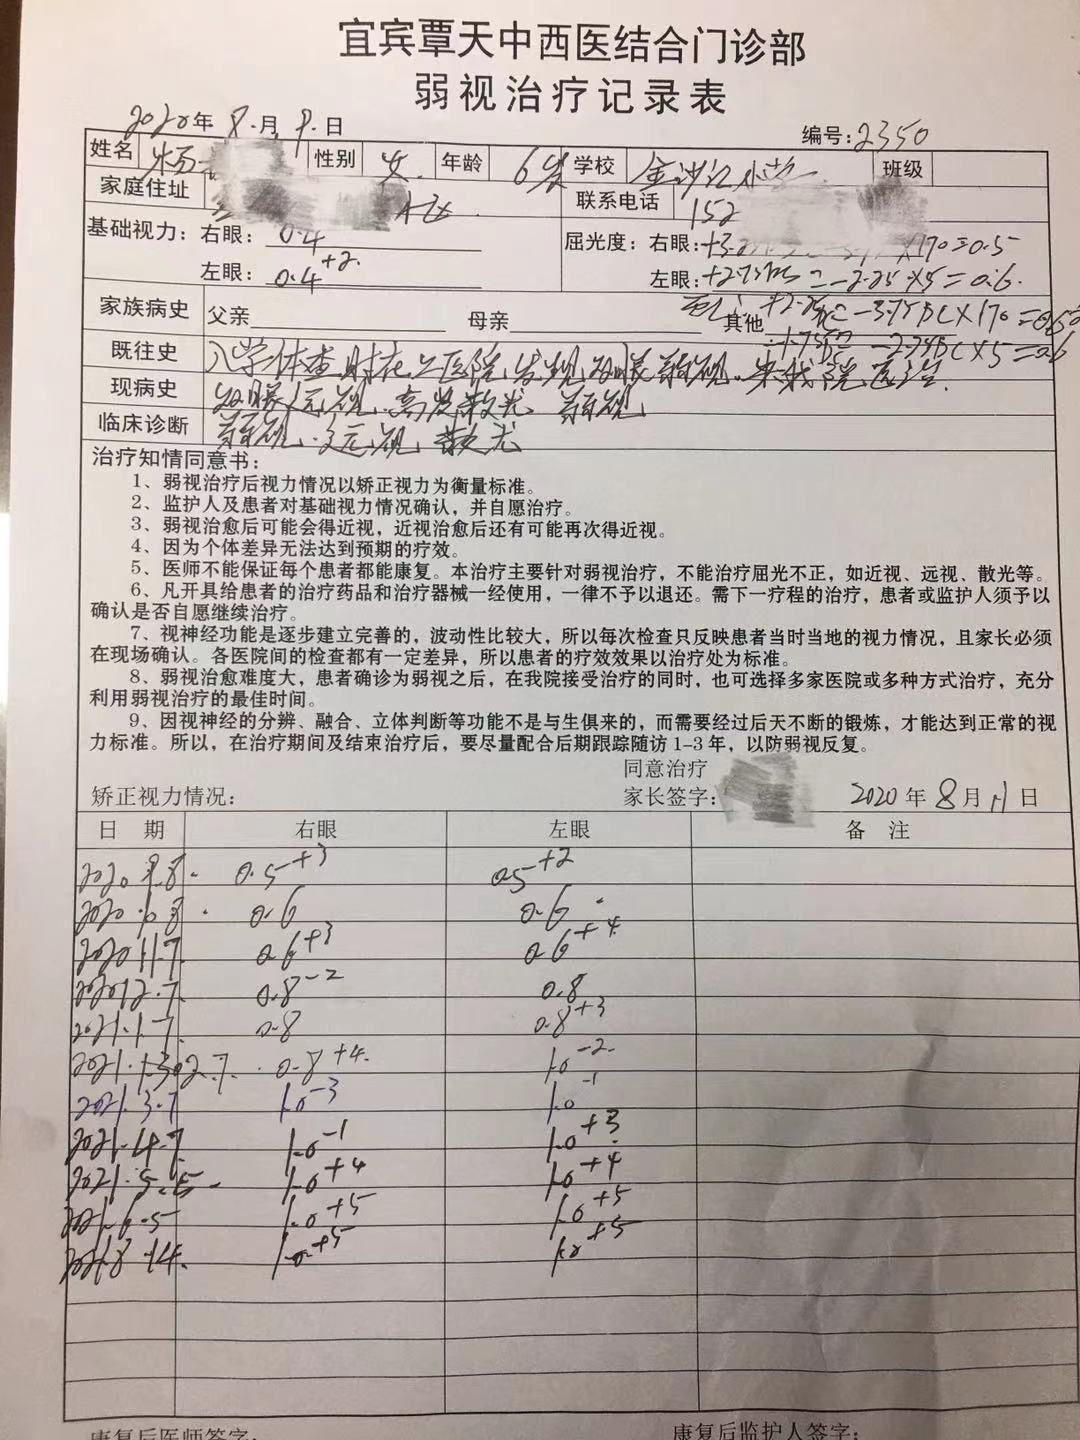 宜宾覃天中西医结合门诊部
弱视治疗记录表
2020年 8.月 9.日 编号:2350
姓名 杨 性别 女. 年龄 6岁 学校 金沙江小学. 班级
家庭住址 A区. 联系电话 152
基础视力: 右眼: 0.4 屈光度: 右眼: ×170=0.5
左眼: 0.4+2. 左眼: -2.25×5=0.6.
家族病史 父亲 母亲 其他 -3.75DC×170=
既往史 入学体查时在 医院发现双眼弱视. 来我院医治.
现病史 双眼远视、高度散光 弱视
临床诊断 弱视. 远视 散光
治疗知情同意书:
1、弱视治疗后视力情况以矫正视力为衡量标准。
2、监护人及患者对基础视力情况确认,并自愿治疗。
3、弱视治愈后可能会得近视,近视治愈后还有可能再次得近视。
4、因为个体差异无法达到预期的疗效。
5、医师不能保证每个患者都能康复。本治疗主要针对弱视治疗,不能治疗屈光不正,如近视、远视、散光等。
6、凡开具给患者的治疗药品和治疗器械一经使用,一律不予以退还。需下一疗程的治疗,患者或监护人须予以
确认是否自愿继续治疗。
7、视神经功能是逐步建立完善的,波动性比较大,所以每次检查只反映患者当时当地的视力情况,且家长必须
在现场确认。各医院间的检查都有一定差异,所以患者的疗效效果以治疗处为标准。
8、弱视治愈难度大,患者确诊为弱视之后,在我院接受治疗的同时,也可选择多家医院或多种方式治疗,充分
利用弱视治疗的最佳时间。
9、因视神经的分辨、融合、立体判断等功能不是与生俱来的,而需要经过后天不断的锻炼,才能达到正常的视
力标准。所以,在治疗期间及结束治疗后,要尽量配合后期跟踪随访1-3年,以防弱视反复。
同意治疗
矫正视力情况: 家长签字: 2020年 8月 11日
日 期 右眼 左眼 备 注
2020 9.8. 0.5+3 0.5+2
2020. 0.6 0.6.
2020 11.7. 0.6+3 0.6+4
2020 12.7. 0.8-2 0.8
2021.1.7. 0.8 0.8+3
2021.1.30 2.7. 0.8+4. 1.0-2
2021.3.7 1.0-3 1.0-1
2021.4.7. 1.0-1 1.0+3
2021.5.5. 1.0+4 1.0+4
2021.6.5 1.0+5 1.0+5
2021.8.14. 1.0+5 1.0+5
康复后医师签字: 康复后监护人签字: